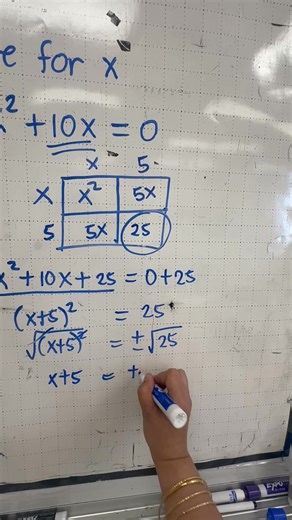 e for x
x² + 10x = 0
x 5
x x² 5x
5 5x 25
x² + 10x + 25 = 0 + 25
(x+5)² = 25
√(x+5)² = ±√25
x+5 = ±
EXPO